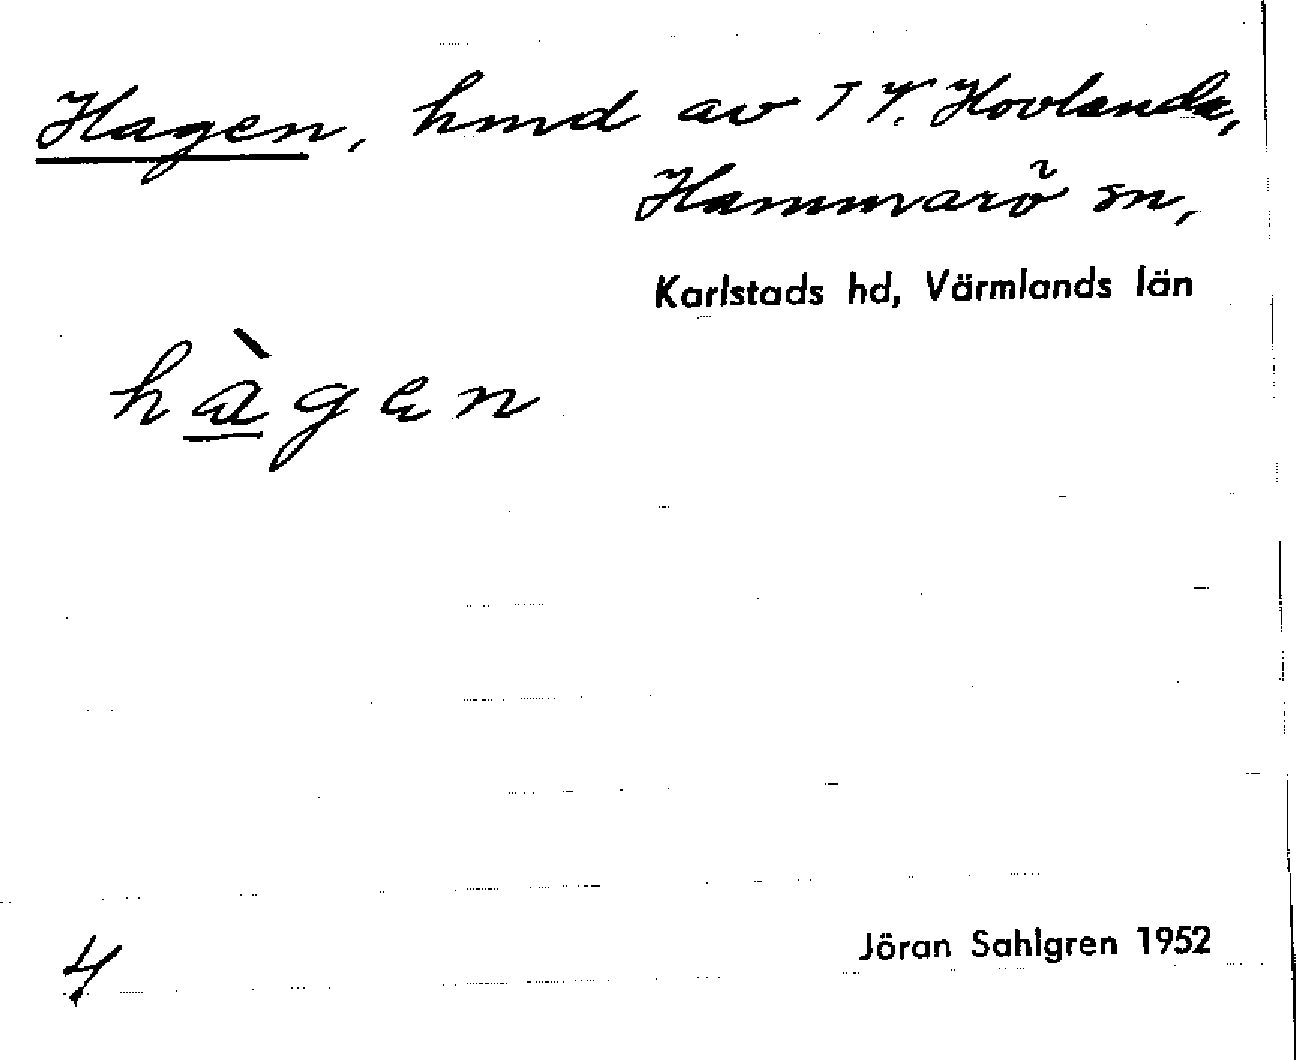 Hagen, hmd av T V. Hovlanda,
Hammarö sn,
Karlstads hd, Värmlands län
hàgen
4
Jöran Sahlgren 1952